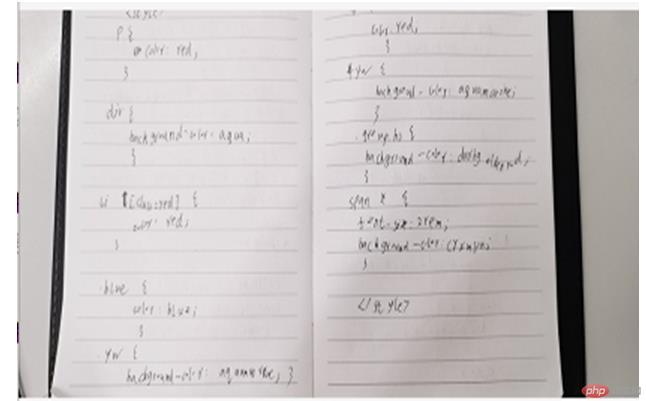 <style>
P {
color: red;
}
div {
background-color: aqua;
}
li [class=red] {
color: red;
}
.blue {
color: blue;
}
.yw {
background-color: aquamarine; }
color: red;
}
#yw {
background-color: aquamarine;
}
.group.bs {
background-color:
}
span * {
font-size: 2rem;
background-color:
}
</style>
php